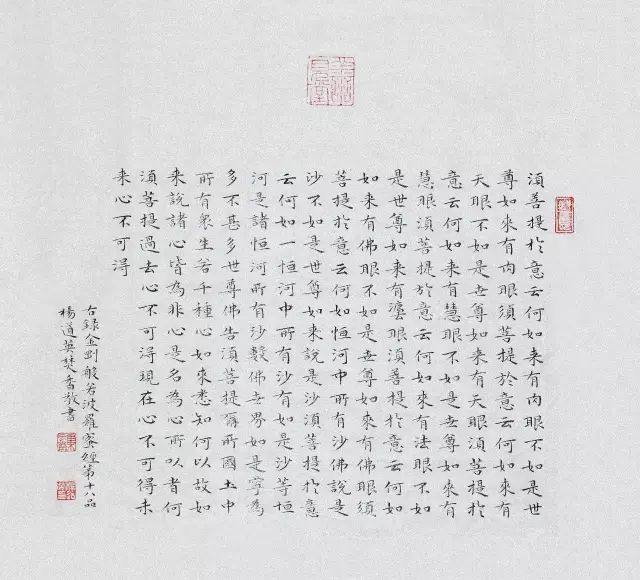 須菩提於意云何如来有肉眼不如是世
尊如來有肉眼須菩提於意云何如來有
天眼不如是世尊如來有天眼須菩提於
意云何如来有慧眼不如是世尊如來有
慧眼須菩提於意云何如來有法眼不如
是世尊如来有灋眼須菩提於意云何如
如来有佛眼不如是世尊如來有佛眼須
菩提於意云何如恒河中所有沙佛說是
沙不如是世尊如来說是沙須菩提於意
云何如一恒河中所有沙有如是沙等恒
河是諸恒河所有沙數佛世界如是寧為
多不甚多世尊佛告須菩提爾所國土中
所有衆生若干種心如来悉知何以故如
来說諸心皆為非心是名為心所以者何
須菩提過去心不可得現在心不可得未
来心不可得
右録金剛般若波羅蜜經第十八品
楊道英焚香敬書